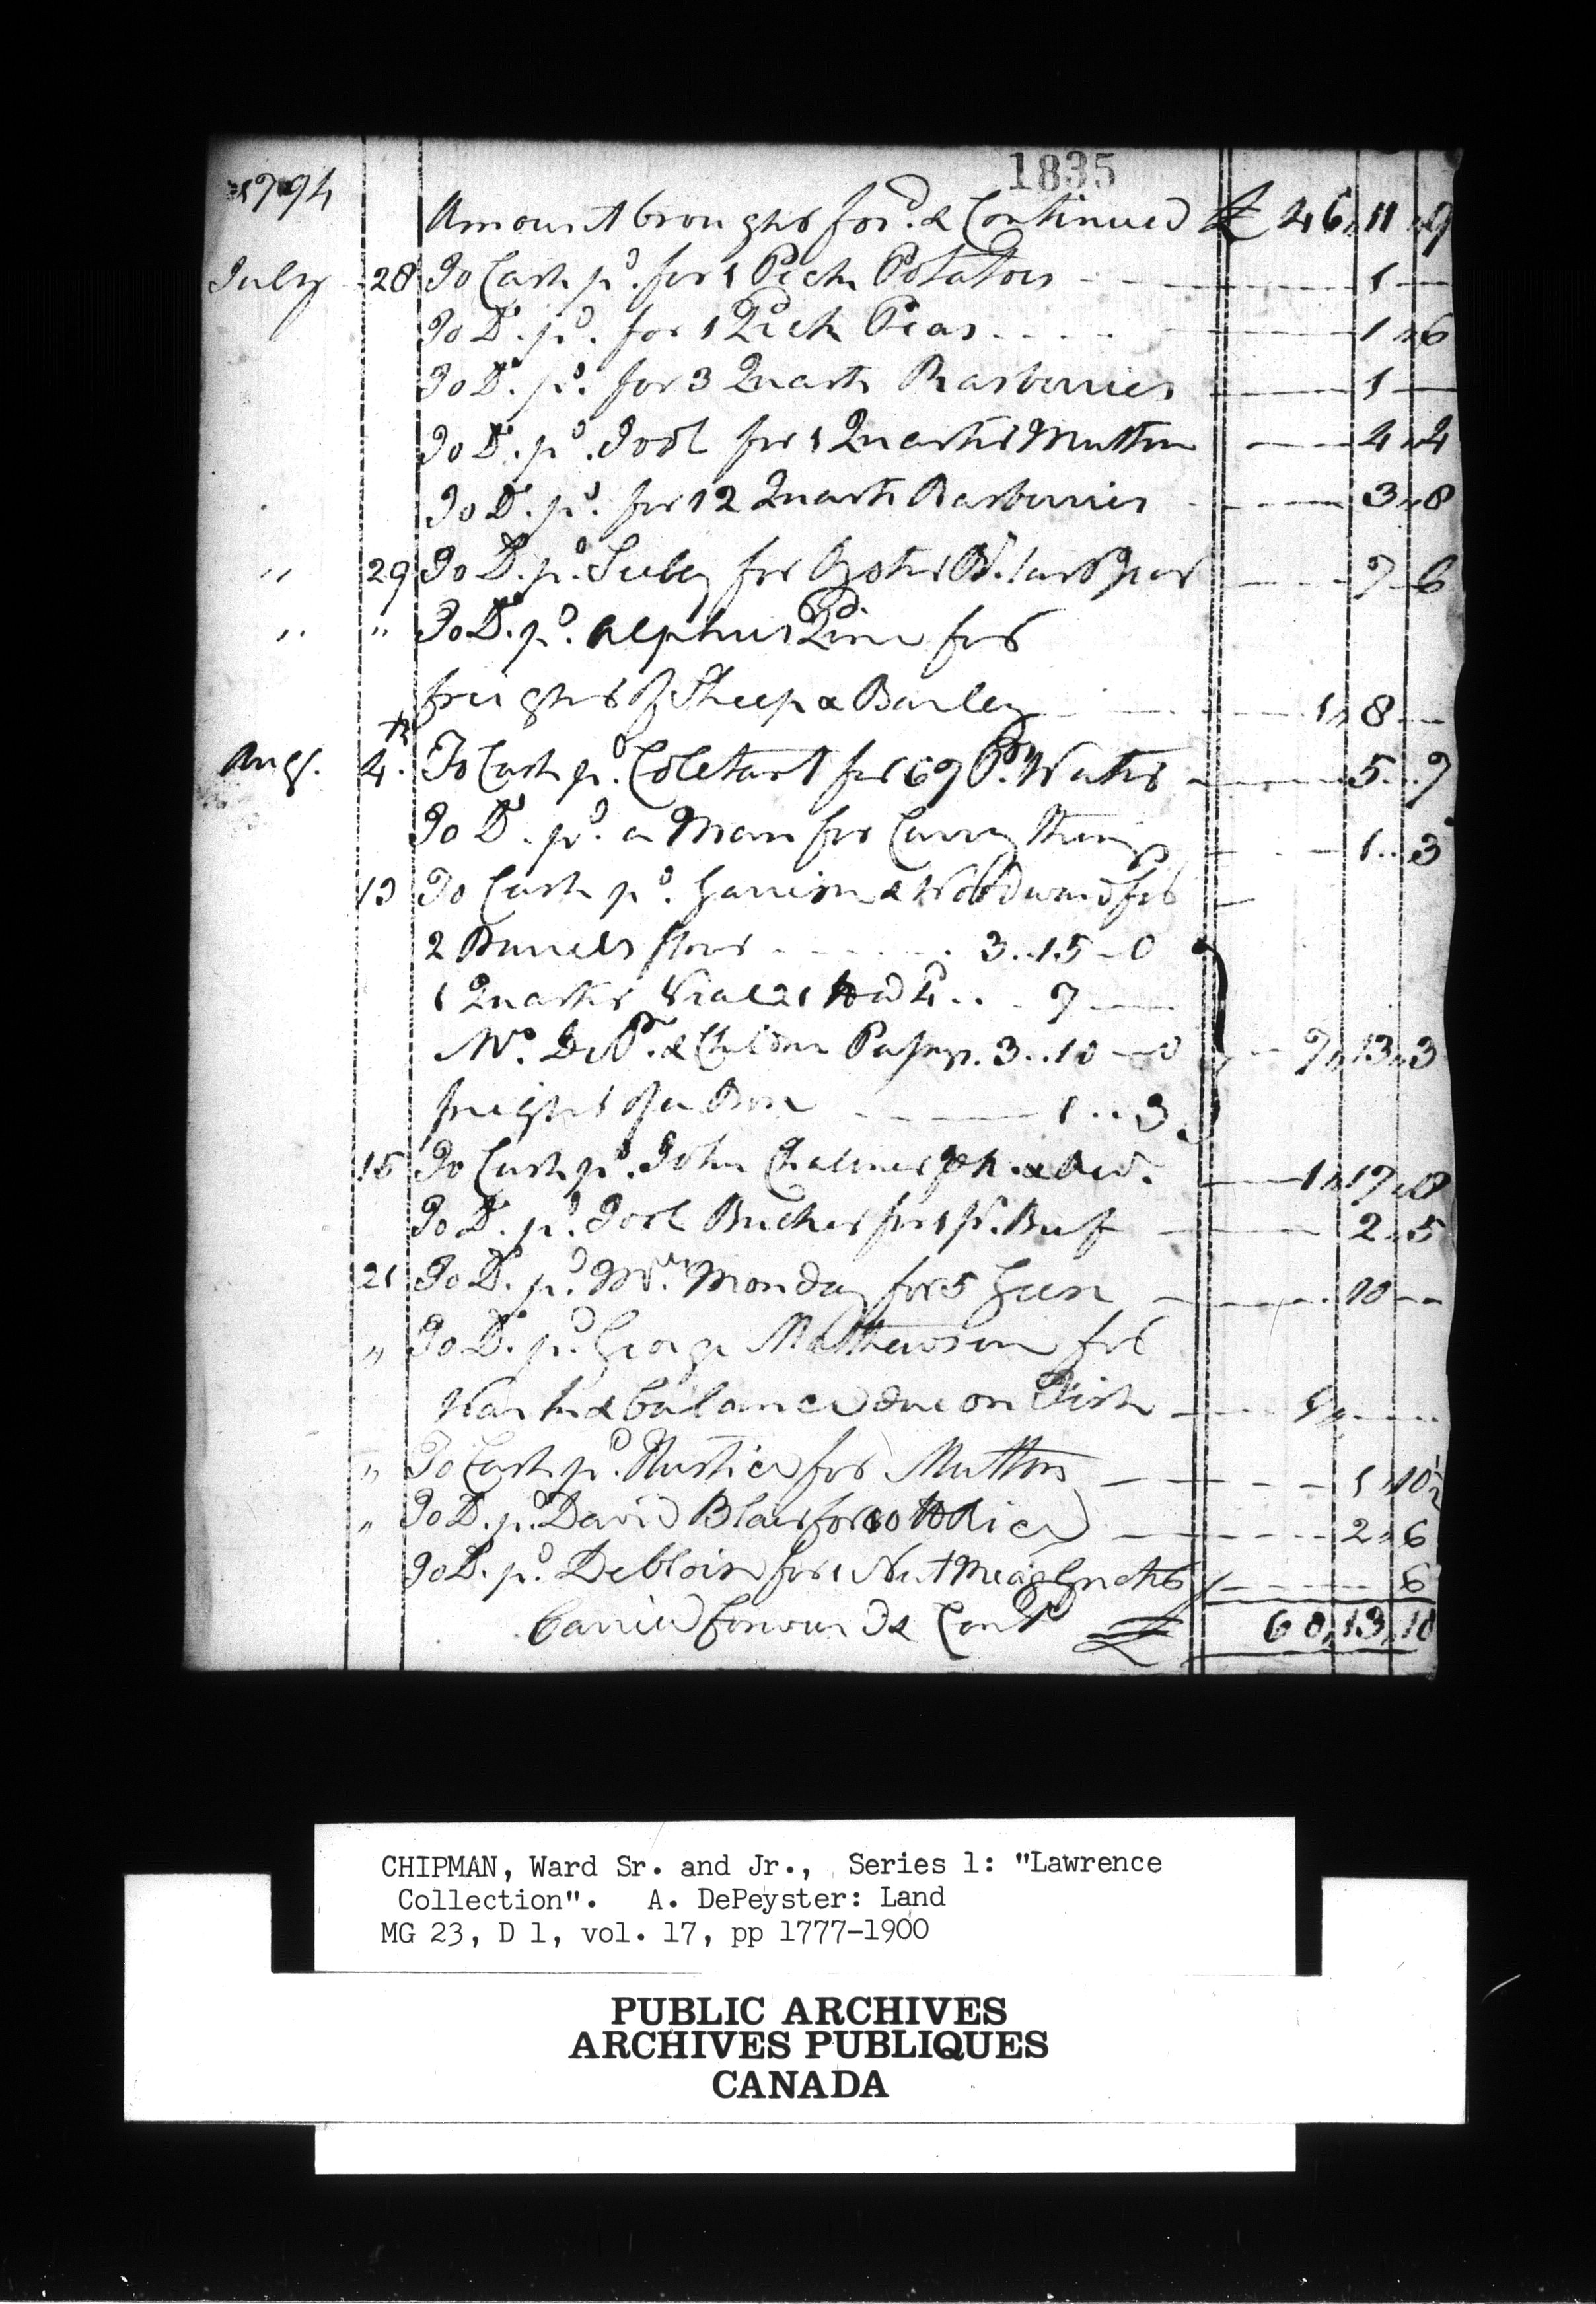 1835
1794
Amount brought for.d & Continued £ 46,, 11 ,, 9
July 28 To Cash p.d for 1 Peck Potatoes 1 —
To D.o p.d for 1 Peck Peas 1 ,, 6
To D.o p.d for 3 Quarts Rasberries 1 —
To D.o p.d for 1 Quarter Mutton 4 ,, 4
To D.o p.d for 12 Quarts Rasberries 3 ,, 8
,, 29 To D.o p.d for 7 6
,, ,, To D.o p.d Alpheus Pine for
freight of Sheep & Barley 1 ,, 8 —
Augt. 4th To Cash p.d for 69 P.r 5 .. 9
To D.o p.d a Man for Carry.g things 1 .. 3
13 To Cash p.d Garrison & Woodward for
2 Barrels flour 3 .. 15 – 0
1 Quarter Veal 21 lb @ 4 .. 7 —
Mrs. De P.r & Children Passage. 3 .. 10 – 0 9 ,, 13 ,, 3
freight of a Box 1 .. 3
15 To Cash p.d John Chalmers 1 ,, 17 ,, 8
To D.o p.d for 1 p.s Beef 2 ,, 5
21 To D.o p.d Mrs. Monday for 5 Geese 10 —
,, To D.o p.d George Matthewson for
& balance due on Fish
,, To Cash p.d Rustice for Mutton 1 ,, 10½
,, To D.o p.d David Blair for 10 lb Rice 2 ,, 6
To D.o p.d Deblois for 1 Nutmeag Grater 6
Carried forward & Cont.d £ 60 ,, 13 ,, 10
CHIPMAN, Ward Sr. and Jr., Series 1: "Lawrence
Collection". A. DePeyster: Land
MG 23, D 1, vol. 17, pp 1777-1900
PUBLIC ARCHIVES
ARCHIVES PUBLIQUES
CANADA